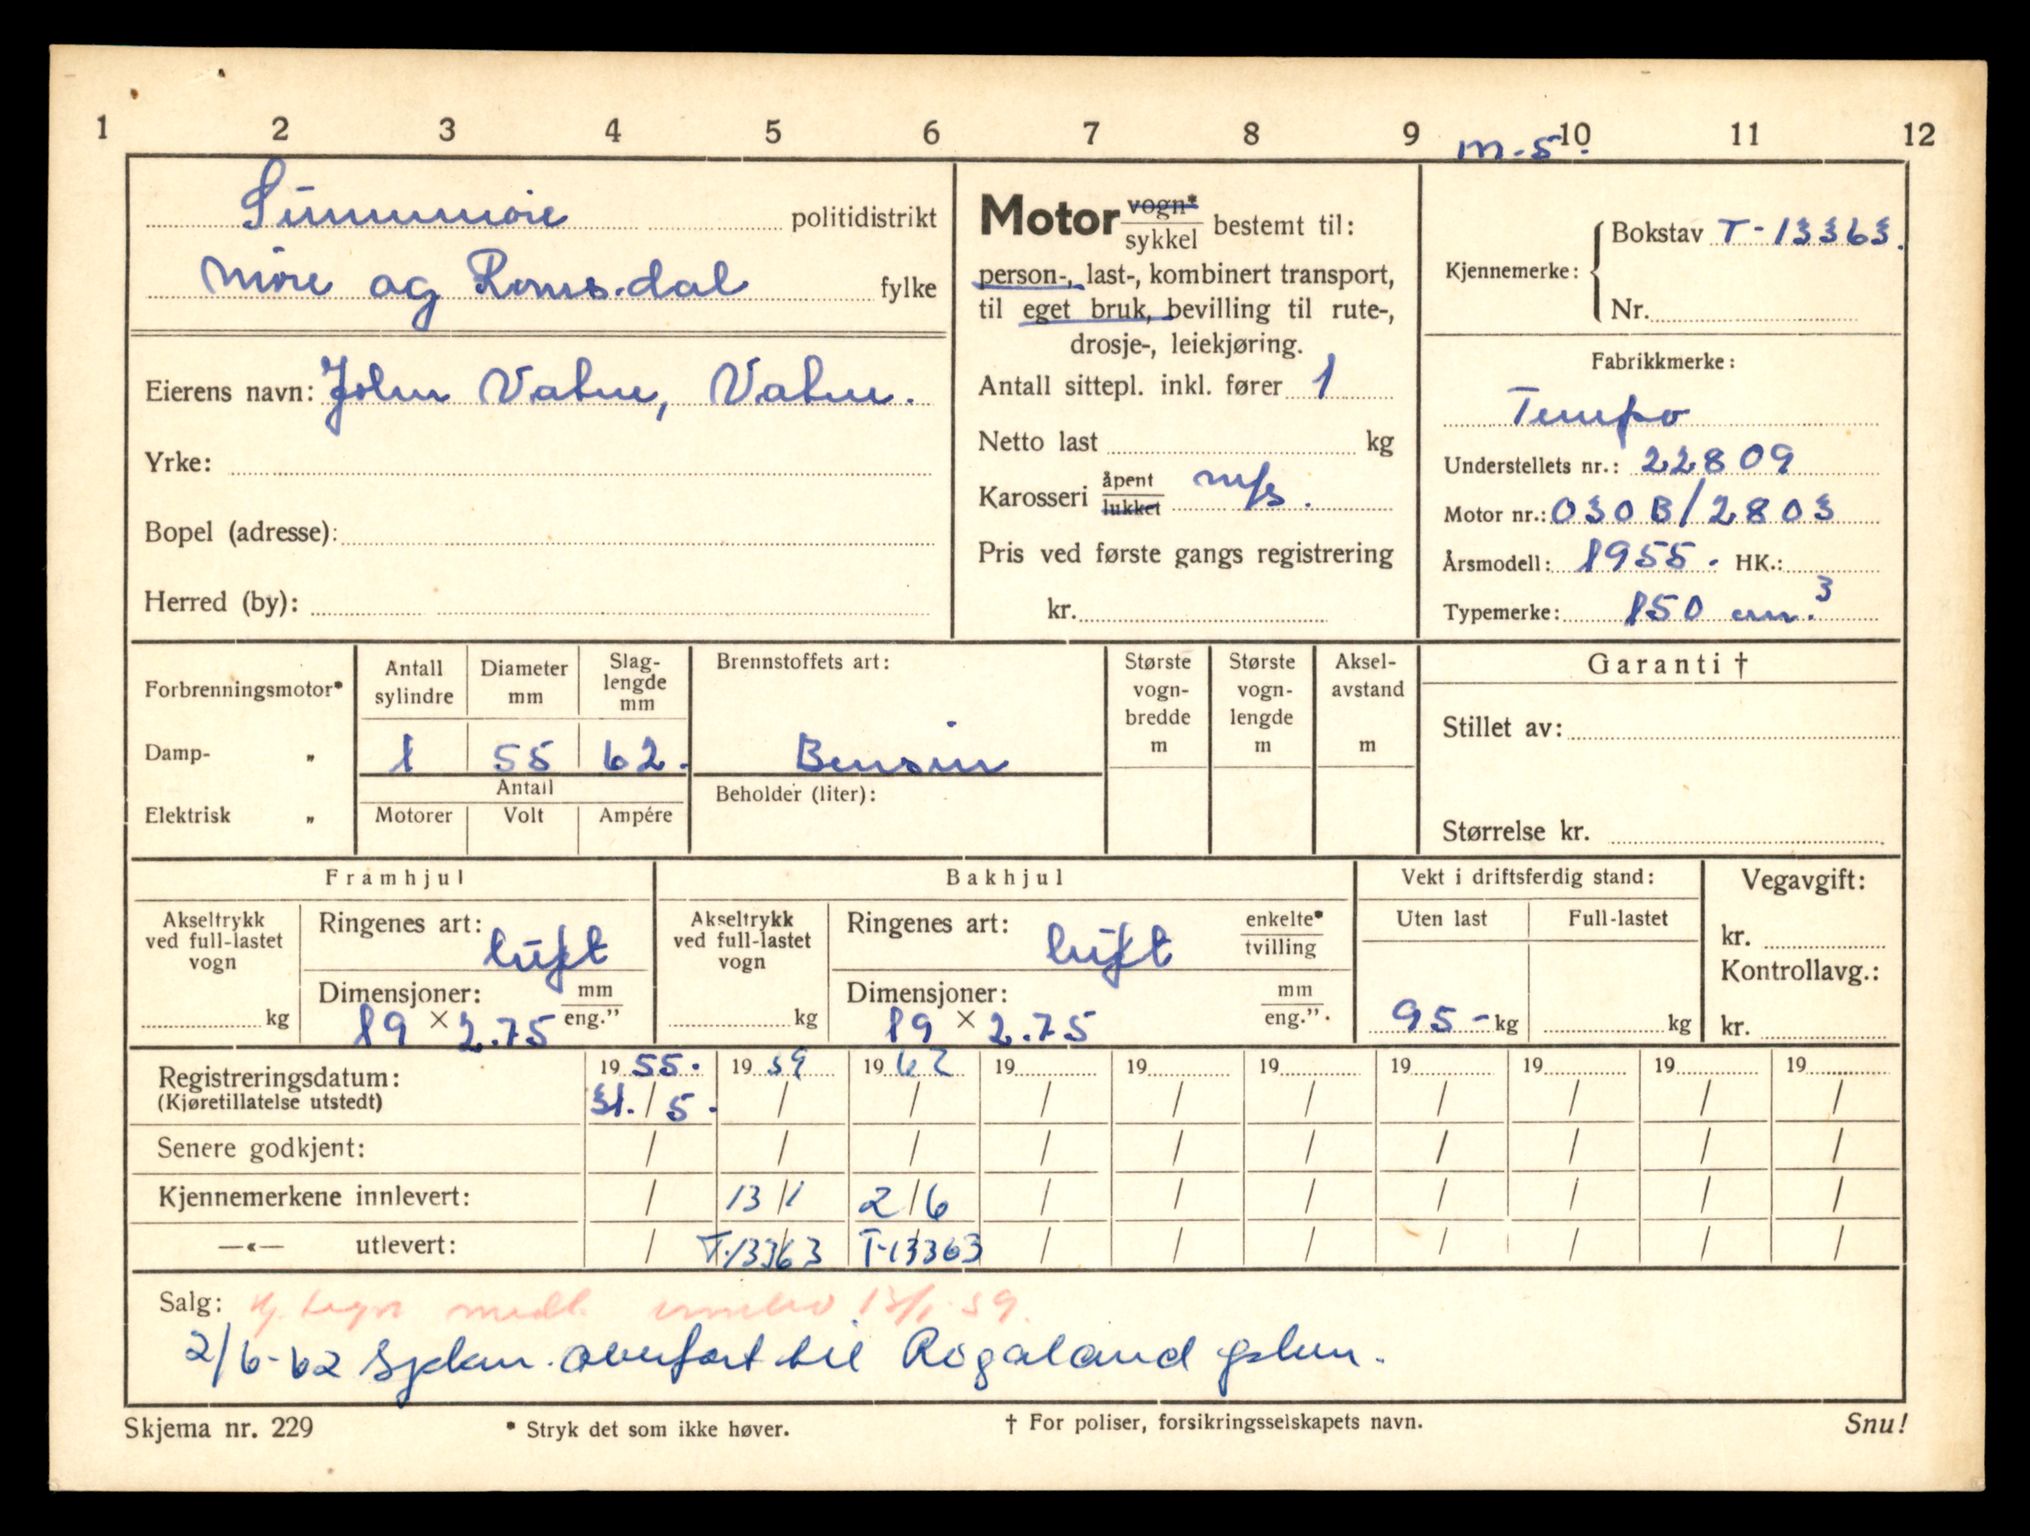 1 2 3 4 5 6 7 8 9 10 11 12
m.s.
Sunnmøre politidistrikt
Møre og Romsdal fylke
Eierens navn: John Vatne, Vatne.
Yrke:
Bopel (adresse):
Herred (by):
Motor vogn* / sykkel bestemt til:
person-, last-, kombinert transport,
til eget bruk, bevilling til rute-,
drosje-, leiekjøring.
Antall sittepl. inkl. fører 1
Netto last kg
Karosseri åpent / lukket m/s.
Pris ved første gangs registrering
kr.
Kjennemerke: Bokstav T-13363.
Nr.
Fabrikkmerke:
Tempo
Understellets nr.: 22809
Motor nr.: 030B/2803
Årsmodell: 1955. HK.:
Typemerke: 150 cm.³
Forbrenningsmotor*
Damp- „
Elektrisk „
Antall sylindre
Diameter mm
Slag-lengde mm
1 55 62.
Antall
Motorer Volt Ampére
Brennstoffets art:
Bensin
Beholder (liter):
Største vogn-bredde m
Største vogn-lengde m
Aksel-avstand m
Garanti †
Stillet av:
Størrelse kr.
Framhjul
Akseltrykk ved full-lastet vogn
kg
Ringenes art: luft
Dimensjoner: mm / eng."
19 × 2.75
Bakhjul
Akseltrykk ved full-lastet vogn
kg
Ringenes art: luft enkelte* / tvilling
Dimensjoner: mm / eng."
19 × 2.75
Vekt i driftsferdig stand:
Uten last Full-lastet
95- kg kg
Vegavgift:
kr.
Kontrollavg.:
kr.
Registreringsdatum: 19 55. 19 59 19 62 19 19 19 19 19 19 19
(Kjøretillatelse utstedt) 31./5. / / / / / / / / /
Senere godkjent: / / / / / / / / / /
Kjennemerkene innlevert: / 13/1 2/6 / / / / / / /
—«— utlevert: / T-13363 T-13363 / / / / / / /
Salg: Kj.tegn medl. innlev 13/1-59.
2/6-62 Sykk. overført til Rogaland
Skjema nr. 229 * Stryk det som ikke høver. † For poliser, forsikringsselskapets navn. Snu!